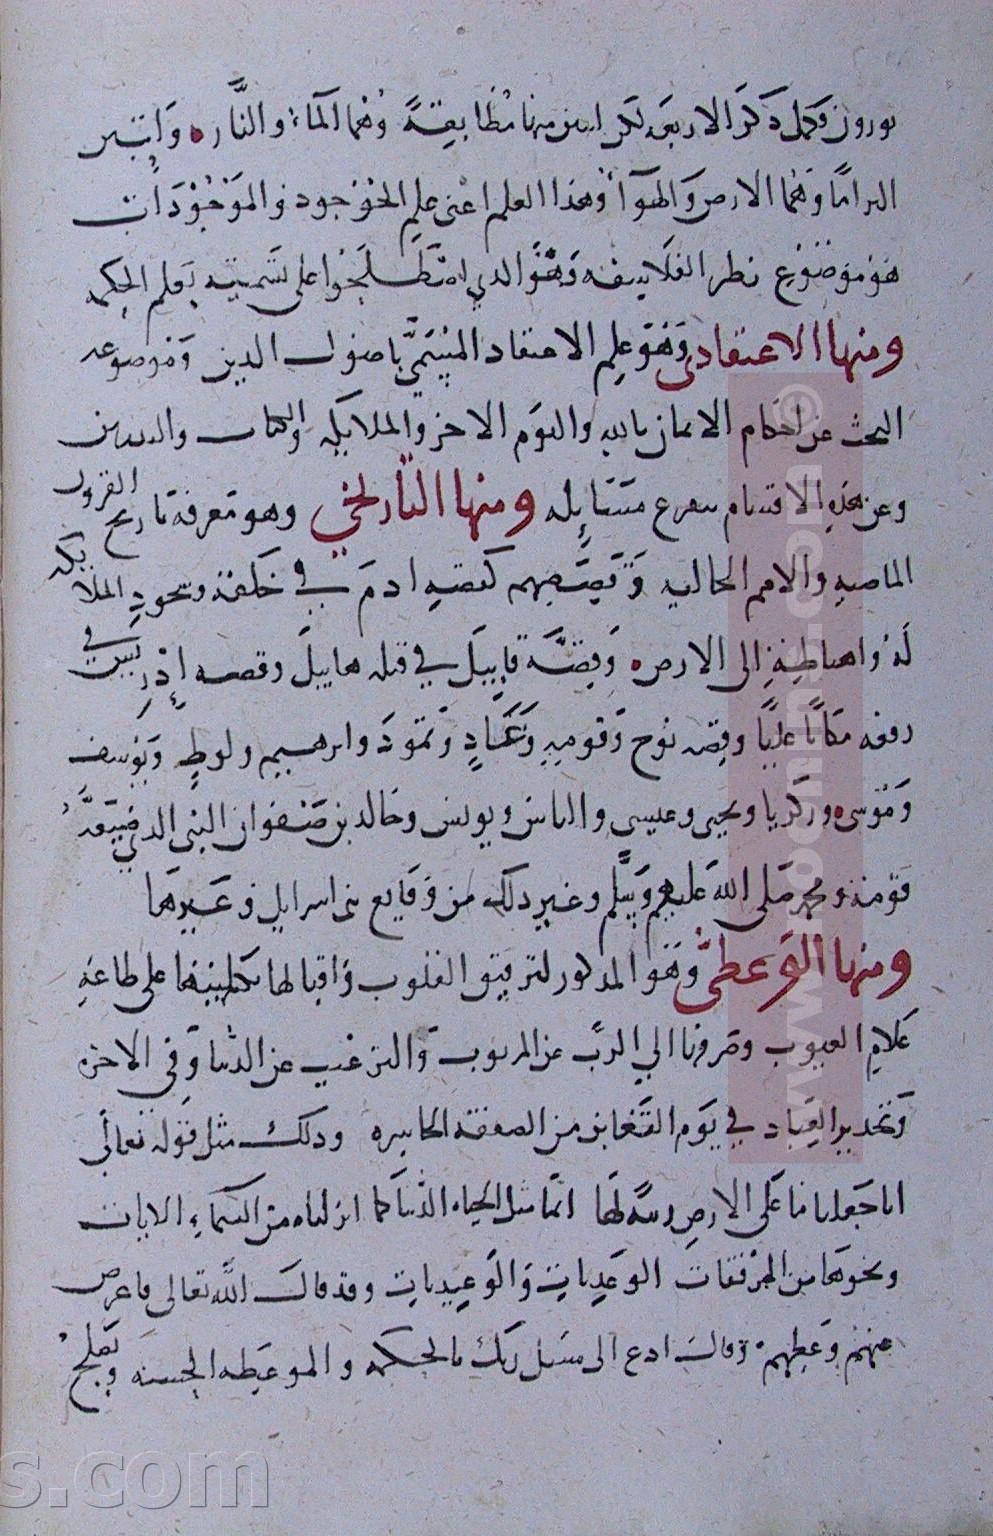 تورون وكمل ذكر الاربعة لكن اثنين منها مُطَابقةً وهُما المآء والنَّاره وَاثنين
التزامًا وهُما الارض وَالهوآء وهذا العلم اعنى علم الموجود والموْجُوْدَات
هو موضوع نظر الفلاسفه وَهُوَ الذي اصْطلحُوا على تسميته بعلم الحكمه
ومنها الاعتقادى وَهُوَ علم الاعتقاد المسَمَّى باصول الدين وموضوعه
البحث عن احكام الايمان بالله واليوم الاخر والملايكه والكتاب والنبيين
وعن هذه الاقسام يتفرع مسَايله ومنها التأريخي وهو معرفة تاريخ القرون
الماضيه والامم الخاليه وَقصَصهم كقصه ادمَ في خلقه وسجود الملايكه
لهُ واهباطهِ الى الارضه وَقِصَّة قابيلَ في قتله هابيلَ وقصه إدريس في
رفعه مكانًا عليًا وقصه نوح وقومهِ وَعَادٍ وثمودَ وابرهيم ولوطٍ ويوسف
ومُوسى وزكريا ويحيى وعيسى والياس ويونس وخالد بن صَفوان النبى الذي ضيَّعَهُ
قومه ومحمد صَلى اللهُ عَليهم وَسَلم وغير ذلك من وَقايع بنى اسرايل وغيرهَا
ومنها الوَعظى وهو المذكور لترقيق القلوب وَاقبالها بكليتها على طاعة
عَلام الغيوب وصرفها الي الربّ عن المربوب وَالترغيب عن الدنيا وفي الاخره
وَتحذير العِباد في يَوم التغَابن من الصفقه الخاسره وذلك مثل قوله تعالى
انا جَعلنا مَا عَلى الارض زينةً لهَا انما مثل الحياه الدنيا كما انزلناه من السمآء الايات
ونحوهَا من المرققات الوعَدِيات وَالوَعيديات وقد قال اللّه تعالى فاعرض
عنهمْ وَعظهمْ وقال ادع الى سبيل ربك بالحكمه والموعظه الحسنه